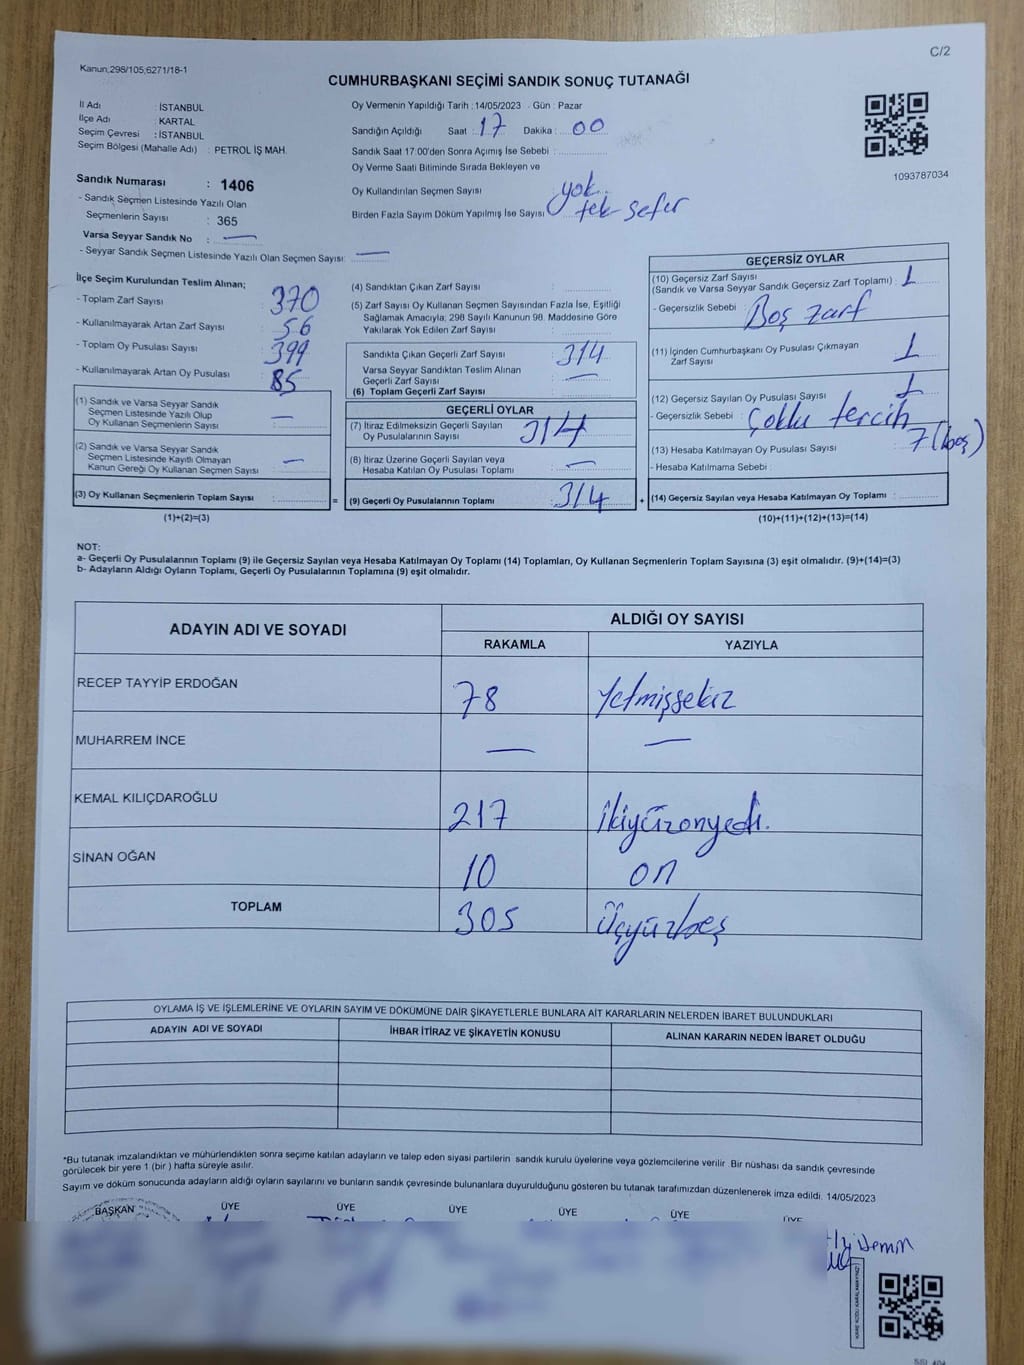 C/2
Kanun,298/105,6271/18-1
CUMHURBAŞKANI SEÇİMİ SANDIK SONUÇ TUTANAĞI
İl Adı : İSTANBUL
İlçe Adı : KARTAL
Seçim Çevresi : İSTANBUL
Seçim Bölgesi (Mahalle Adı) : PETROL İŞ MAH.
Sandık Numarası : 1406
- Sandık Seçmen Listesinde Yazılı Olan
Seçmenlerin Sayısı : 365
Varsa Seyyar Sandık No : —
- Seyyar Sandık Seçmen Listesinde Yazılı Olan Seçmen Sayısı: —
Oy Vermenin Yapıldığı Tarih : 14/05/2023 - Gün : Pazar
Sandığın Açıldığı Saat : 17 Dakika : 00
Sandık Saat 17:00'den Sonra Açımış İse Sebebi :
Oy Verme Saati Bitiminde Sırada Bekleyen ve
Oy Kullandırılan Seçmen Sayısı yok
Birden Fazla Sayım Döküm Yapılmış İse Sayısı tek sefer
1093787034
İlçe Seçim Kurulundan Teslim Alınan;
- Toplam Zarf Sayısı 370
- Kullanılmayarak Artan Zarf Sayısı 56
- Toplam Oy Pusulası Sayısı 399
- Kullanılmayarak Artan Oy Pusulası 85
(1) Sandık ve Varsa Seyyar Sandık
Seçmen Listesinde Yazılı Olup
Oy Kullanan Seçmenlerin Sayısı : —
(2) Sandık ve Varsa Seyyar Sandık
Seçmen Listesinde Kayıtlı Olmayan
Kanun Gereği Oy Kullanan Seçmen Sayısı : —
(3) Oy Kullanan Seçmenlerin Toplam Sayısı :
(1)+(2)=(3)
(4) Sandıktan Çıkan Zarf Sayısı :
(5) Zarf Sayısı Oy Kullanan Seçmen Sayısından Fazla İse, Eşitliği
Sağlamak Amacıyla; 298 Sayılı Kanunun 98. Maddesine Göre
Yakılarak Yok Edilen Zarf Sayısı :
Sandıkta Çıkan Geçerli Zarf Sayısı : 314
Varsa Seyyar Sandıktan Teslim Alınan
Geçerli Zarf Sayısı : —
(6) Toplam Geçerli Zarf Sayısı :
GEÇERLİ OYLAR
(7) İtiraz Edilmeksizin Geçerli Sayılan
Oy Pusulalarının Sayısı : 314
(8) İtiraz Üzerine Geçerli Sayılan veya
Hesaba Katılan Oy Pusulası Toplamı : —
= (9) Geçerli Oy Pusulalarının Toplamı : 314 +
GEÇERSİZ OYLAR
(10) Geçersiz Zarf Sayısı
(Sandık ve Varsa Seyyar Sandık Geçersiz Zarf Toplamı) : 1
- Geçersizlik Sebebi : Boş zarf
(11) İçinden Cumhurbaşkanı Oy Pusulası Çıkmayan
Zarf Sayısı : 1
(12) Geçersiz Sayılan Oy Pusulası Sayısı : 1
- Geçersizlik Sebebi : Çoklu tercih
(13) Hesaba Katılmayan Oy Pusulası Sayısı : 7 (boş)
- Hesaba Katılmama Sebebi :
(14) Geçersiz Sayılan veya Hesaba Katılmayan Oy Toplamı :
(10)+(11)+(12)+(13)=(14)
NOT:
a- Geçerli Oy Pusulalarının Toplamı (9) ile Geçersiz Sayılan veya Hesaba Katılmayan Oy Toplamı (14) Toplamları, Oy Kullanan Seçmenlerin Toplam Sayısına (3) eşit olmalıdır. (9)+(14)=(3)
b- Adayların Aldığı Oyların Toplamı, Geçerli Oy Pusulalarının Toplamına (9) eşit olmalıdır.
ADAYIN ADI VE SOYADI ALDIĞI OY SAYISI
RAKAMLA YAZIYLA
RECEP TAYYİP ERDOĞAN 78 Yetmişsekiz
MUHARREM İNCE — —
KEMAL KILIÇDAROĞLU 217 İkiyüzonyedi.
SİNAN OĞAN 10 on
TOPLAM 305 Üçyüzbeş
OYLAMA İŞ VE İŞLEMLERİNE VE OYLARIN SAYIM VE DÖKÜMÜNE DAİR ŞİKAYETLERLE BUNLARA AİT KARARLARIN NELERDEN İBARET BULUNDUKLARI
ADAYIN ADI VE SOYADI İHBAR İTİRAZ VE ŞİKAYETİN KONUSU ALINAN KARARIN NEDEN İBARET OLDUĞU
*Bu tutanak imzalandıktan ve mühürlendikten sonra seçime katılan adayların ve talep eden siyasi partilerin sandık kurulu üyelerine veya gözlemcilerine verilir Bir nüshası da sandık çevresinde
görülecek bir yere 1 (bir ) hafta süreyle asılır.
Sayım ve döküm sonucunda adayların aldığı oyların sayılarını ve bunların sandık çevresinde bulunanlara duyurulduğunu gösteren bu tutanak tarafımızdan düzenlenerek imza edildi. 14/05/2023
BAŞKAN ÜYE ÜYE ÜYE ÜYE ÜYE ÜYE